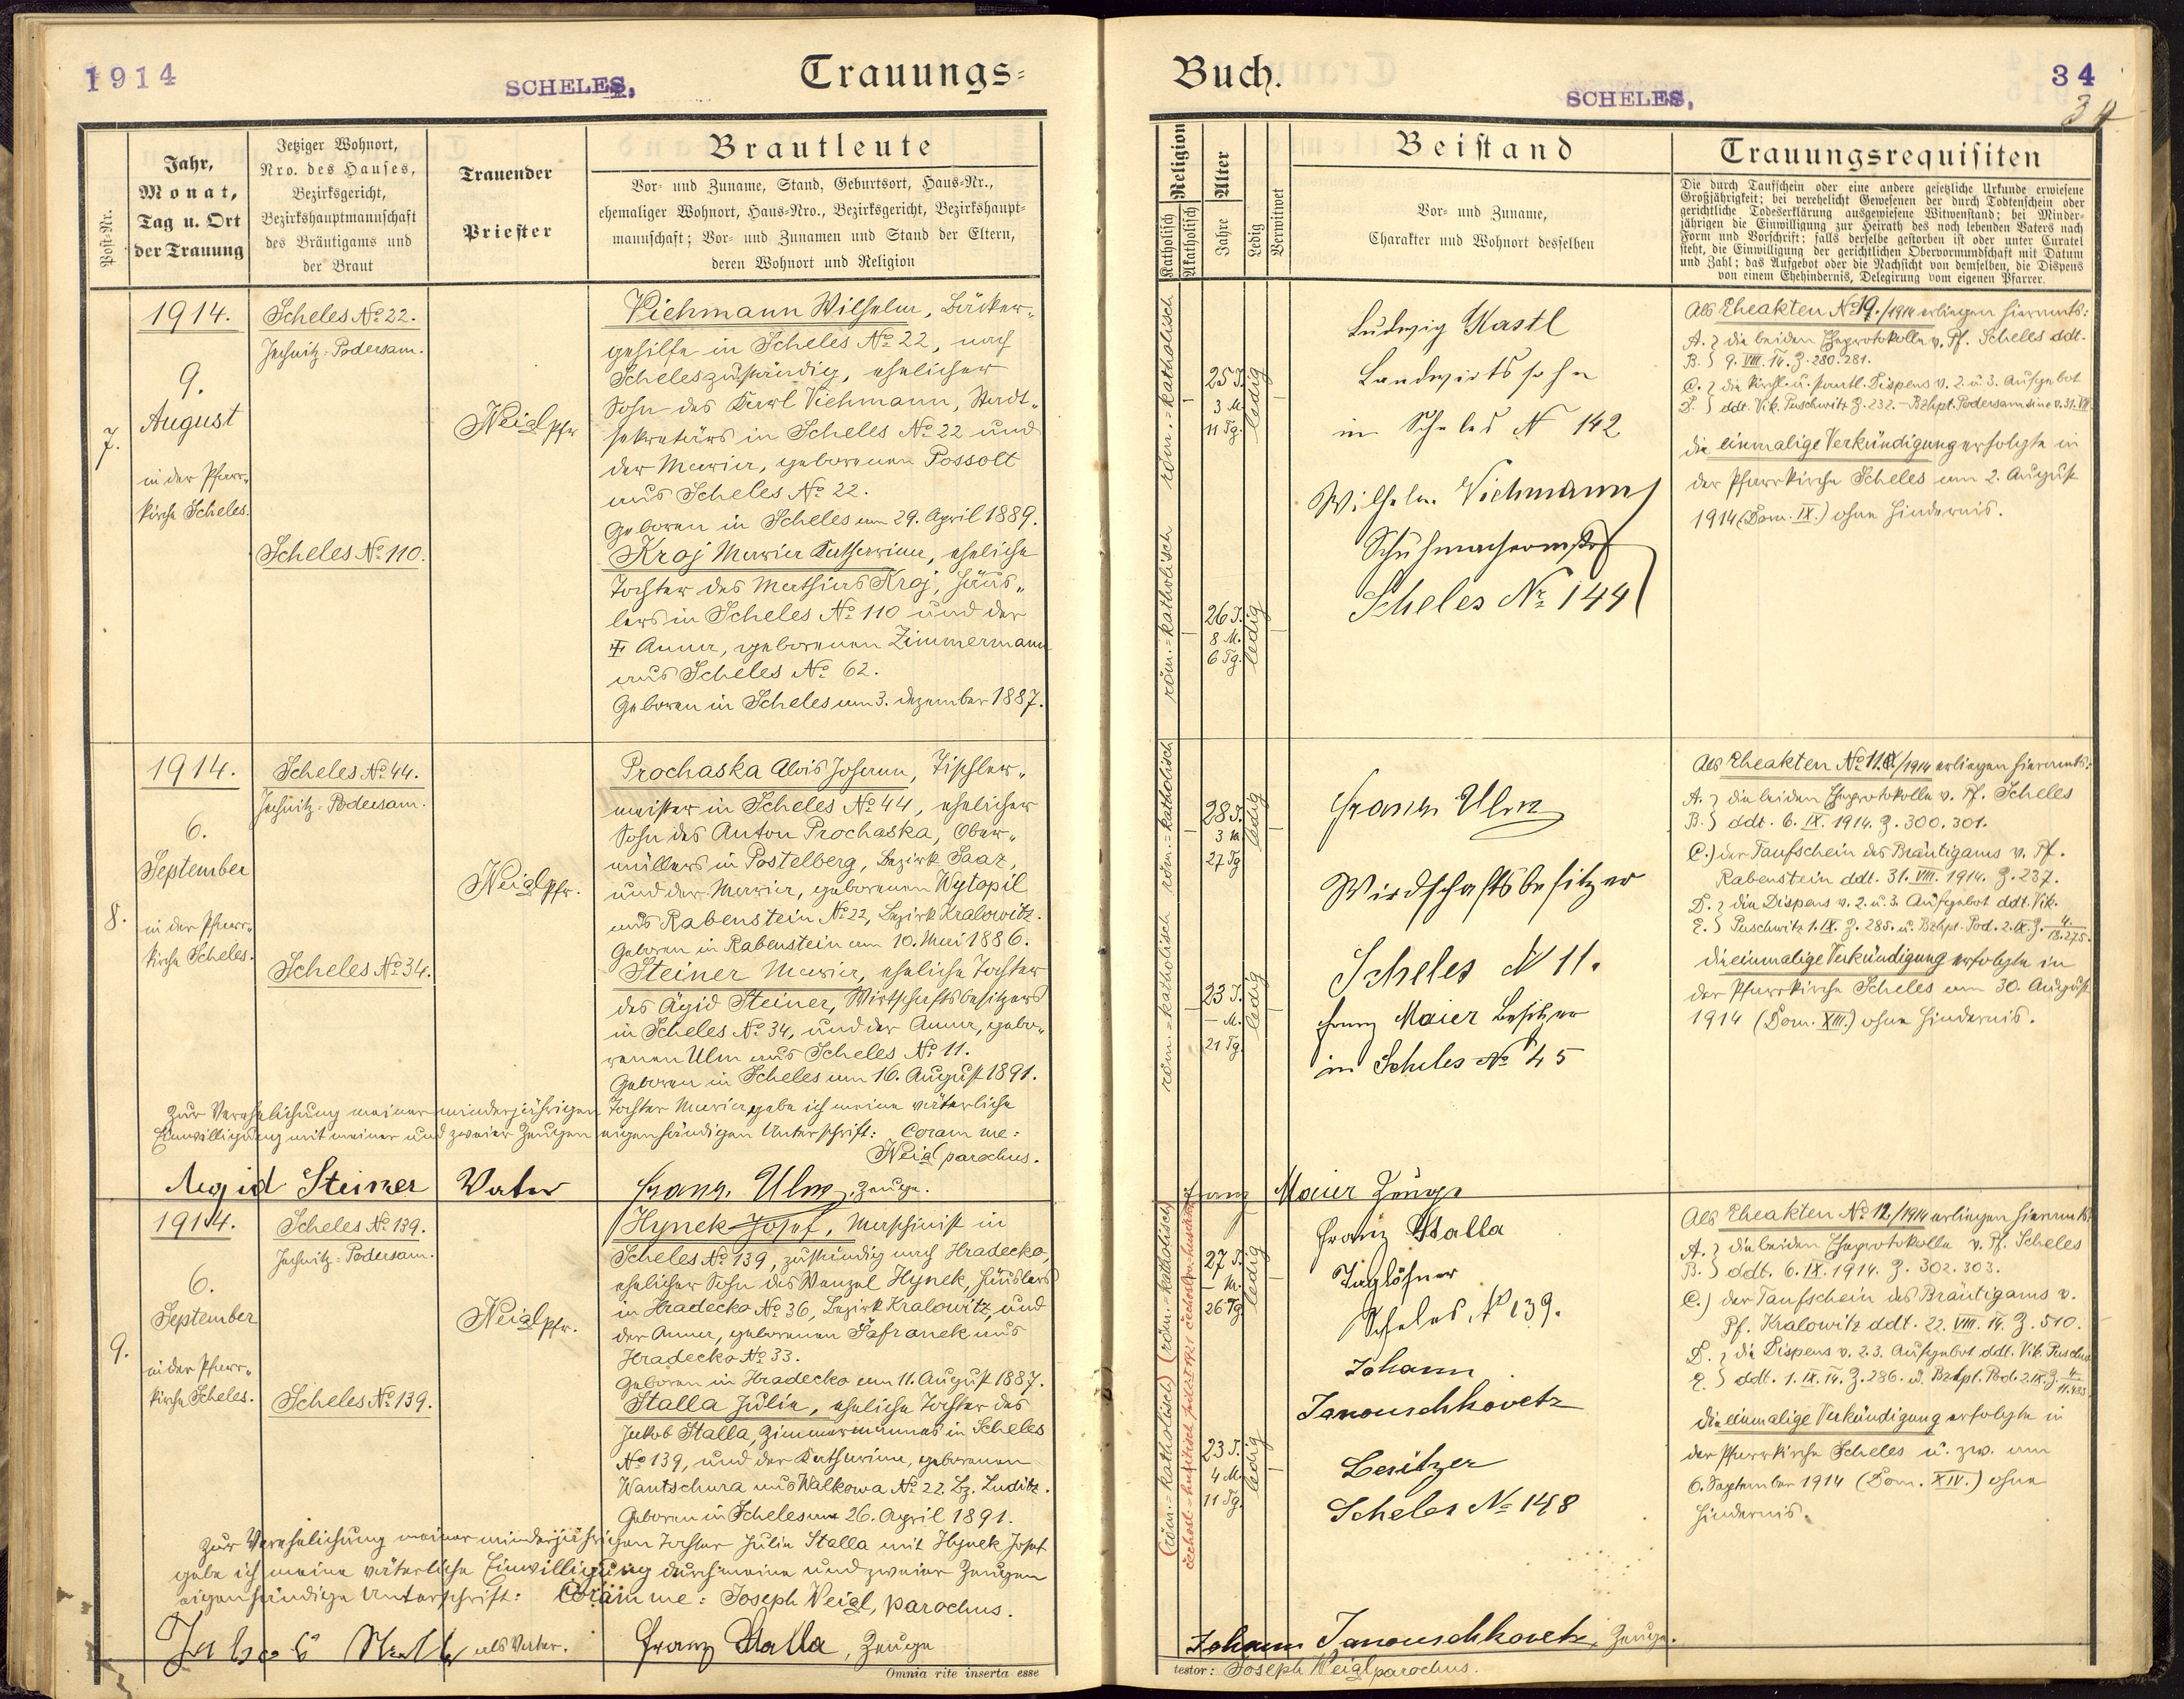 1914
SCHELES,
Trauungs=
Post-Nr.
Jahr,
Monat,
Tag u. Ort
der Trauung
Jetziger Wohnort,
Nro. des Hauses,
Bezirksgericht,
Bezirkshauptmannschaft
des Bräutigams und
der Braut
Trauender
Priester
Brautleute
Vor- und Zuname, Stand, Geburtsort, Haus-Nr.,
ehemaliger Wohnort, Haus-Nro., Bezirksgericht, Bezirkshaupt-
mannschaft; Vor- und Zunamen und Stand der Eltern,
deren Wohnort und Religion
7.
1914.
9.
August
in der Pfarr-
kirche Scheles.
Scheles No 22.
Jechnitz-Podersam.
Scheles No 110.
Neigl Pfr
Viehmann Wilhelm, Bäcker-
gehilfe in Scheles No 22, nach
Scheles zuständig, ehelicher
Sohn des Karl Viehmann, Stadt-
sekretärs in Scheles No 22 und
der Maria, geborenen Possolt
aus Scheles No 22.
Geboren in Scheles am 29. April 1889.
Kroj Maria Katharina, eheliche
Tochter des Mathias Kroj, Häus-
lers in Scheles No 110 und der
‡ Anna, geborenen Zimmermann
aus Scheles No 62.
Geboren in Scheles am 3. Dezember 1887.
8.
1914.
6.
September
in der Pfarr-
kirche Scheles.
Scheles No 44.
Jechnitz-Podersam.
Scheles No 34.
Neigl Pfr.
Prochaska Alois Johann, Tischler-
meister in Scheles No 44, ehelicher
Sohn des Anton Prochaska, Ober-
müllers in Postelberg, Bezirk Saaz,
und der Maria, geborenen Wytopil
aus Rabenstein No 22, Bezirk Kralowitz.
Geboren in Rabenstein am 10. Mai 1886.
Steiner Maria, eheliche Tochter
des Ägid Steiner, Wirtschaftsbesitzers
in Scheles No 34, und der Anna, gebo-
renen Ulm aus Scheles No 11.
Geboren in Scheles am 16. August 1891.
Zur Verehelichung meiner minderjährigen Tochter Maria gebe ich meine väterliche
Einwilligung mit meiner und zweier Zeugen eigenhändigen Unterschrift: Coram me:
Neigl parochus.
Aegid Steiner Vater Franz Ulm, Zeuge.
9.
1914.
6.
September
in der Pfarr-
kirche Scheles.
Scheles No 139.
Jechnitz-Podersam.
Scheles No 139.
Neigl Pfr.
Hynek Josef, Maschinist in
Scheles No 139, zuständig nach Hradecko,
ehelicher Sohn des Wenzel Hynek, Häuslers
in Hradecko No 36, Bezirk Kralowitz, und
der Anna, geborenen Šafranek aus
Hradecko No 33.
Geboren in Hradecko am 11. August 1887.
Stalla Julie, eheliche Tochter des
Jakob Stalla, Zimmermannes in Scheles
No 139, und der Katharina, geborenen
Wantschura aus Walkowa No 22 Bz. Luditz.
Geboren in Scheles am 26. April 1891.
Zur Verehelichung meiner minderjährigen Tochter Julie Stalla mit Hynek Josef
gebe ich meine väterliche Einwilligung durch meine und zweier Zeugen
eigenhändige Unterschrift: Coram me: Joseph Neigl, parochus.
Jakob Stalla als Vater. Franz Stalla, Zeuge
Omnia rite inserta esse
Buch.
SCHELES,
34
34
Religion
Katholisch
Akatholisch
Alter
Jahre
Ledig
Verwitwet
Beistand
Vor- und Zuname,
Charakter und Wohnort desselben
Trauungsrequisiten
Die durch Taufschein oder eine andere gesetzliche Urkunde erwiesene
Großjährigkeit; bei verehelicht Gewesenen der durch Todtenschein oder
gerichtliche Todeserklärung ausgewiesene Witwenstand; bei Minder-
jährigen die Einwilligung zur Heirath des noch lebenden Vaters nach
Form und Vorschrift; falls derselbe gestorben ist oder unter Curatel
steht, die Einwilligung der gerichtlichen Obervormundschaft mit Datum
und Zahl; das Aufgebot oder die Nachsicht von demselben, die Dispens
von einem Ehehindernis, Delegirung vom eigenen Pfarrer.
röm.=katholisch
25 J.
3 M.
11 Tg.
ledig
röm.=katholisch
26 J.
8 M.
6 Tg.
ledig
Ludwig Kastl
Landwirtssohn
in Scheles N 142
Wilhelm Viehmann
Schuhmachermstr
Scheles Nr 144
Als Eheakten No 19./1914 erliegen hieramts:
A. } die beiden Eheprotokolle v. Pf. Scheles ddt.
B. } 9. VIII. 14. Z. 280. 281.
C. } die kirchl. u. staatl. Dispens v. 2. u. 3. Aufgebot
D. } ddt. Vik. Puschwitz Z. 232. - Bzhpt. Podersam sine v. 31. VII
die einmalige Verkündigung erfolgte in
der Pfarrkirche Scheles am 2. August
1914 (Dom. IX.) ohne Hindernis.
röm.=katholisch
28 J.
3 M.
27 Tg
ledig
röm.=katholisch
23 J.
- M.
21 Tg.
ledig
Franz Ulm
Wirdschaftsbesitzer
Scheles N 11.
Franz Maier Besitzer
in Scheles No 45
Als Eheakten No 11./1914 erliegen hieramts:
A. } die beiden Eheprotokolle v. Pf. Scheles
B. } ddt. 6. IX. 1914. Z. 300. 301.
C.) der Taufschein des Bräutigams v. Pf.
Rabenstein ddt. 31. VIII. 1914. Z. 237.
D. } die Dispens v. 2. u. 3. Aufgebot ddt. Vik.
E. } Puschwitz 1. IX. Z. 285. u. Bzhpt. Pod. 2. IX. Z. 4/18.275.
die einmalige Verkündigung erfolgte in
der Pfarrkirche Scheles am 30. August
1914 (Dom. XIII.) ohne Hindernis.
Franz Maier Zeuge
(röm.=katholisch)
27 J.
- M.
26 Tg
ledig
(röm.=katholisch)
23 J.
4 M.
11 Tg.
ledig
Franz Stalla
Taglöhner
Scheles, N 139.
Johann
Janouschkovetz
Besitzer
Scheles No 148
Als Eheakten No 12/1914 erliegen hieramts:
A. } die beiden Eheprotokolle v. Pf. Scheles
B. } ddt. 6. IX. 1914. Z. 302. 303.
C.) der Taufschein des Bräutigams v.
Pf. Kralowitz ddt. 22. VIII. 14. Z. 510.
D. } die Dispens v. 2. 3. Aufgebot ddt. Vik. Puschw
E. } ddt. 1. IX. 14. Z. 286. u. Bzhpt. Pod. 2. IX. Z.
die einmalige Verkündigung erfolgte in
der Pfarrkirche Scheles u. zw. am
6. September 1914 (Dom. XIV.) ohne
Hindernis.
Johann Janouschkovetz, Zeuge.
testor: Joseph Neigl parochus.